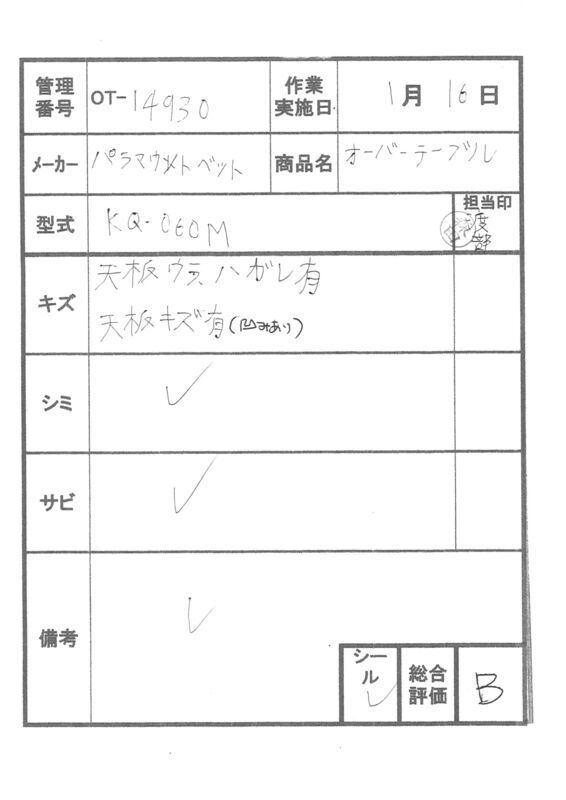 管理番号 OT-14930 作業実施日 1月16日
メーカー パラマウントベット 商品名 オーバーテーブル
型式 KQ-060M 担当印 渡部
キズ 天板ウラ、ハガレ有
天板キズ有(凹みあり)
シミ ✓
サビ ✓
備考 ✓
シール ✓ 総合評価 B